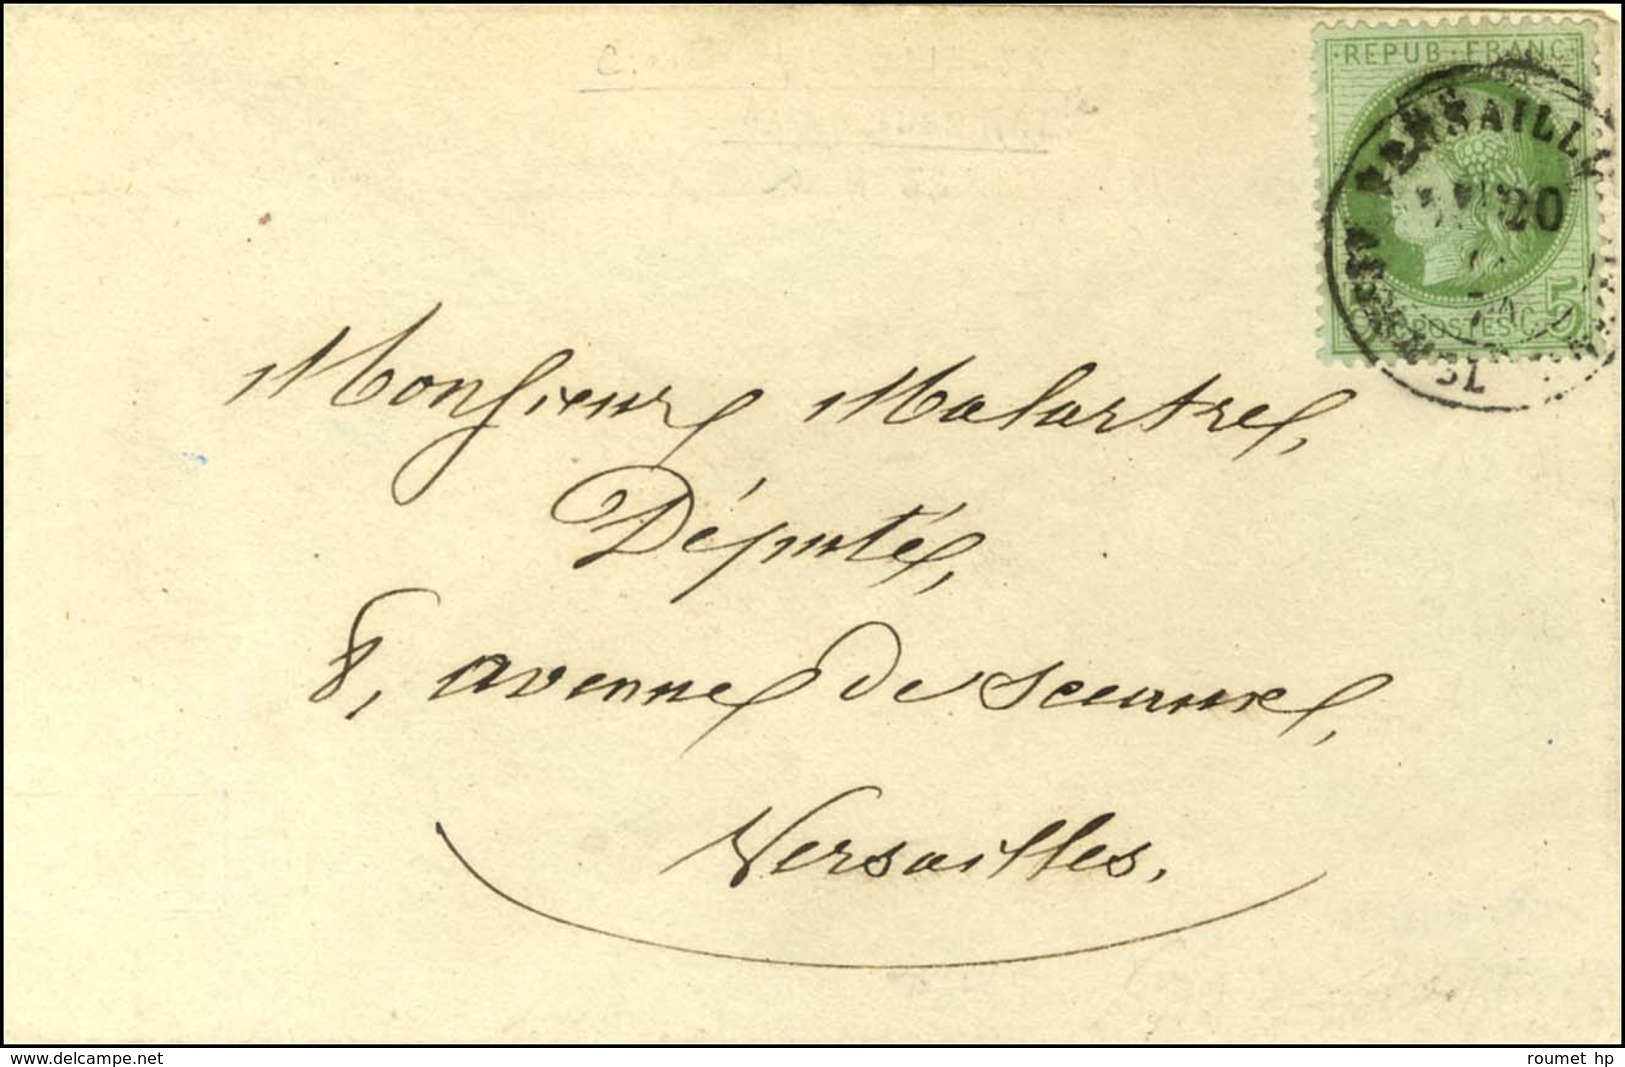 REPUB · FRANC
VERSAILLES
20
POSTES 5 C
Monsieur Malartre,
Député,
8, avenue de Sceaux,
Versailles.
www.delcampe.net
roumet hp